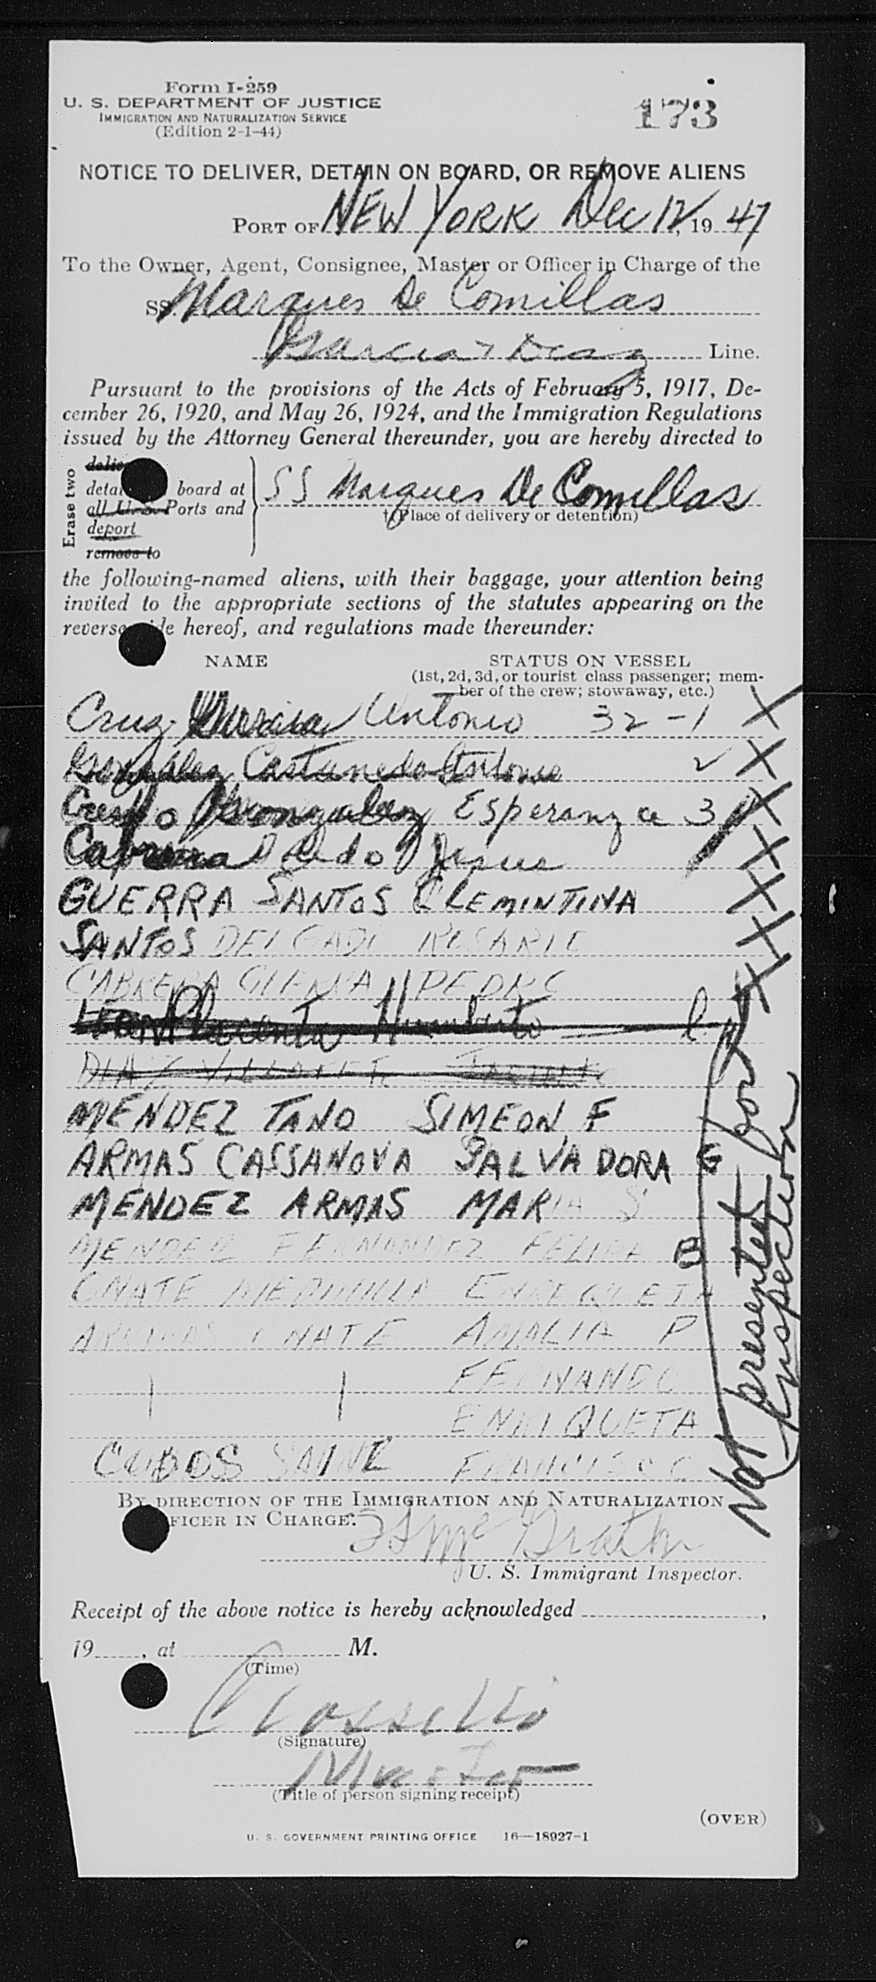 Form I-259
U. S. DEPARTMENT OF JUSTICE
IMMIGRATION AND NATURALIZATION SERVICE
(Edition 2-1-44)
173
NOTICE TO DELIVER, DETAIN ON BOARD, OR REMOVE ALIENS
PORT OF NEW YORK Dec 12, 19 47
To the Owner, Agent, Consignee, Master or Officer in Charge of the
SS Marques De Comillas
Garcia & Diaz Line.
Pursuant to the provisions of the Acts of February 5, 1917, De-
cember 26, 1920, and May 26, 1924, and the Immigration Regulations
issued by the Attorney General thereunder, you are hereby directed to
Erase two
board at
all U. S. Ports and
deport
remove to
SS Marques De Comillas
(Place of delivery or detention)
the following-named aliens, with their baggage, your attention being
invited to the appropriate sections of the statutes appearing on the
hereof, and regulations made thereunder:
NAME
STATUS ON VESSEL
(1st, 2d, 3d, or tourist class passenger; mem-
ber of the crew; stowaway, etc.)
Cruz Garcia Antonio 32-1 X
Gonzalez Castaneda 2 X
Gonzalez Esperanza 3 X
Cabrera Jesus X
GUERRA SANTOS CLEMINTINA X
SANTOS DELGADO ROSARIO X
CABRERA GUERRA PEDRO X
Placenta Humberto
DIAZ
MENDEZ TANO SIMEON F
ARMAS CASSANOVA SALVADORA G
MENDEZ ARMAS MARIA S
MENDEZ FERNANDEZ FELIPA B
ONATE ENRIQUETA
ARMAS ONATE AMALIA P
FERNANDO
ENRIQUETA
COBOS SAINZ FRANCISCO
Not presented for
Inspection
BY DIRECTION OF THE IMMIGRATION AND NATURALIZATION
IN CHARGE:
McGrath
U. S. Immigrant Inspector.
Receipt of the above notice is hereby acknowledged
,
19 , at M.
(Time)
(Signature)
Master
(Title of person signing receipt)
(OVER)
U. S. GOVERNMENT PRINTING OFFICE 16—18927-1